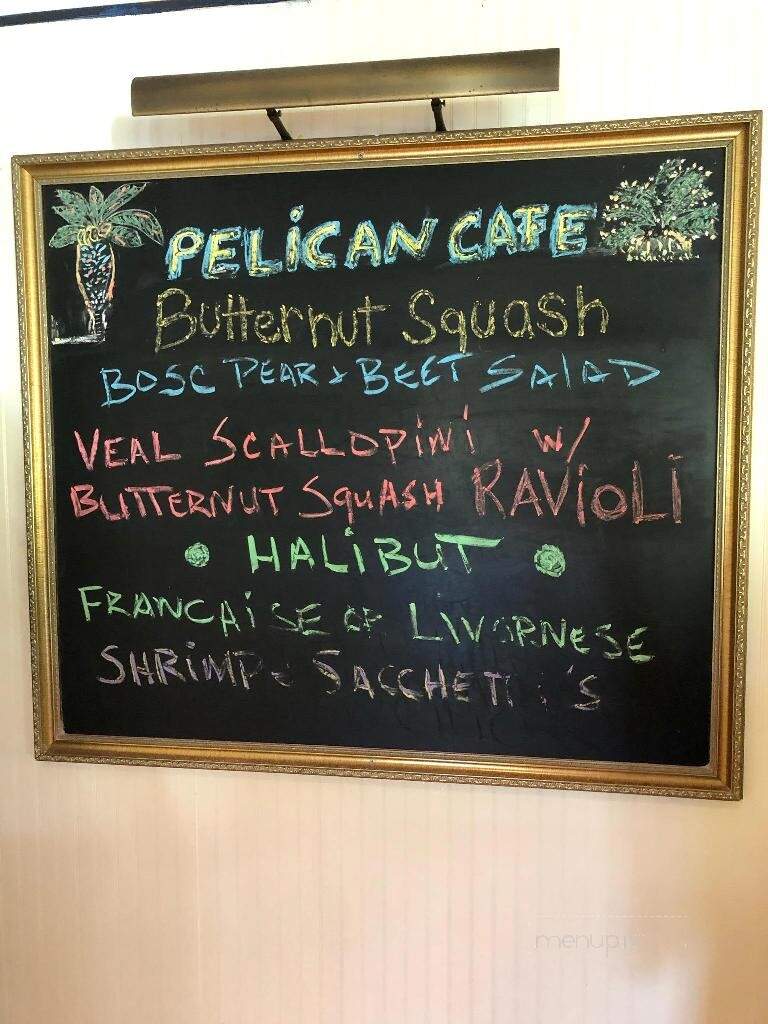 PELICAN CAFE
Butternut Squash
BOSC PEAR & BEET SALAD
VEAL SCALLOPINI W/
BUTTERNUT SQUASH RAVIOLI
HALIBUT
FRANCAISE OR LIVORNESE
SHRIMP & SACCHETTI'S
menupi